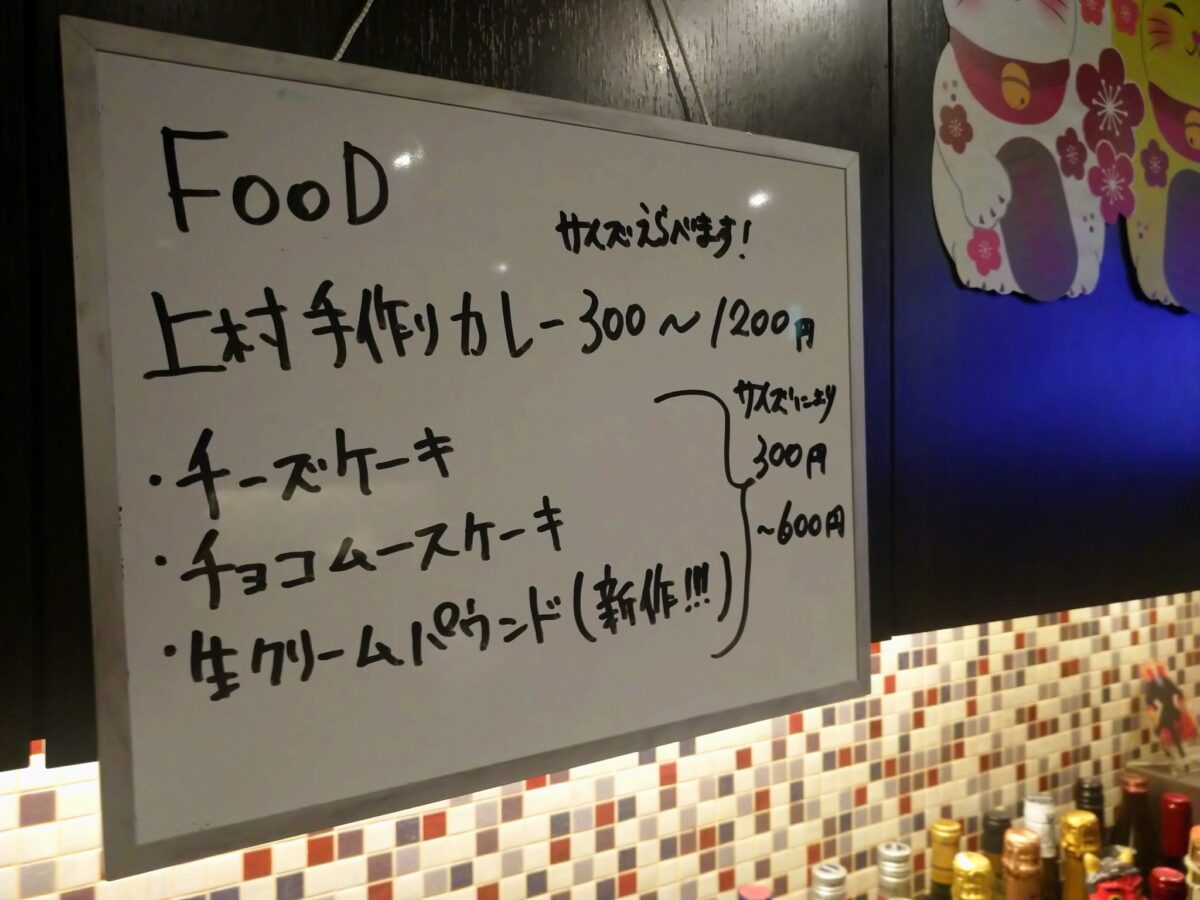 FooD
サイズえらべます!
上村手作りカレー300〜1200円
・チーズケーキ
・チョコムースケーキ
・生クリームパウンド(新作!!!)
サイズにより
300円
〜600円